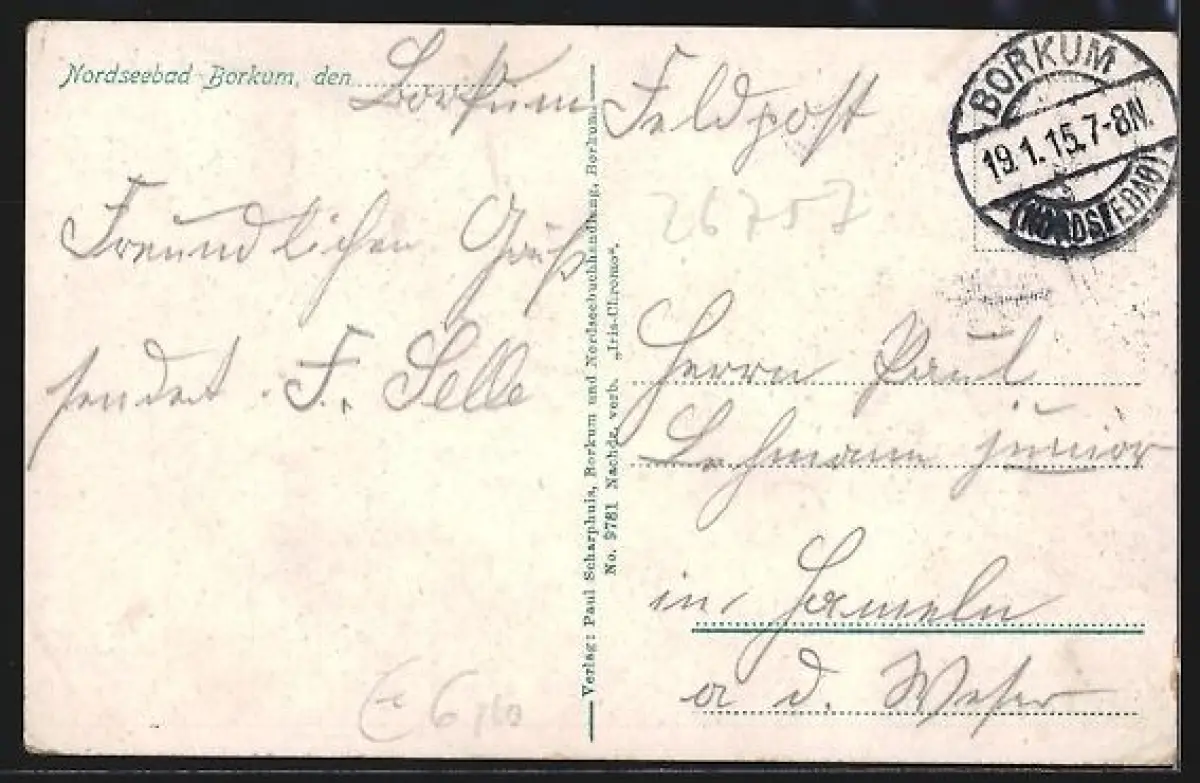 Nordseebad-Borkum, den Borkum
Freundlichen Gruß
sendet F. Selle
Verlag: Paul Scharphuis, Borkum und Nordseebuchhandlung, Borkum.
No. 9781 Nachdr. verb. „Iris-Chromo“.
Feldpost
26757
BORKUM
19.1.15.7-8N.
(NORDSEEBAD)
Herrn Paul
Lehmann junior
in Hameln
a d. Weser